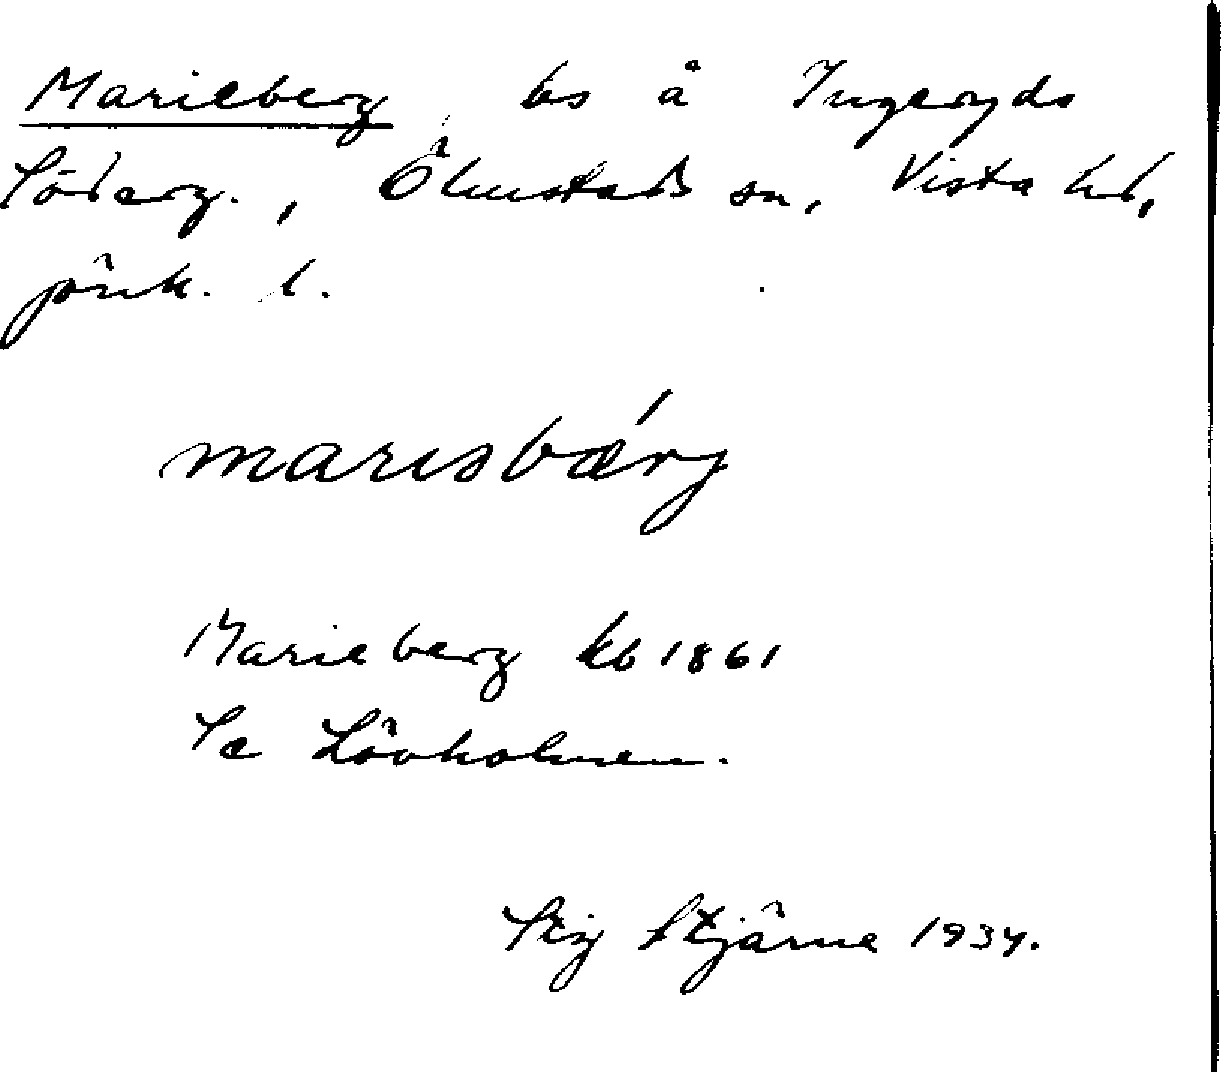 Marieberg bs å Ingeryds
Söderg., Ölmstads sn, Vista hd,
Jönk. l.
marısbǽrj
Marieberg kb 1861
Se Lövholmen.
Stig Stjärne 1934.